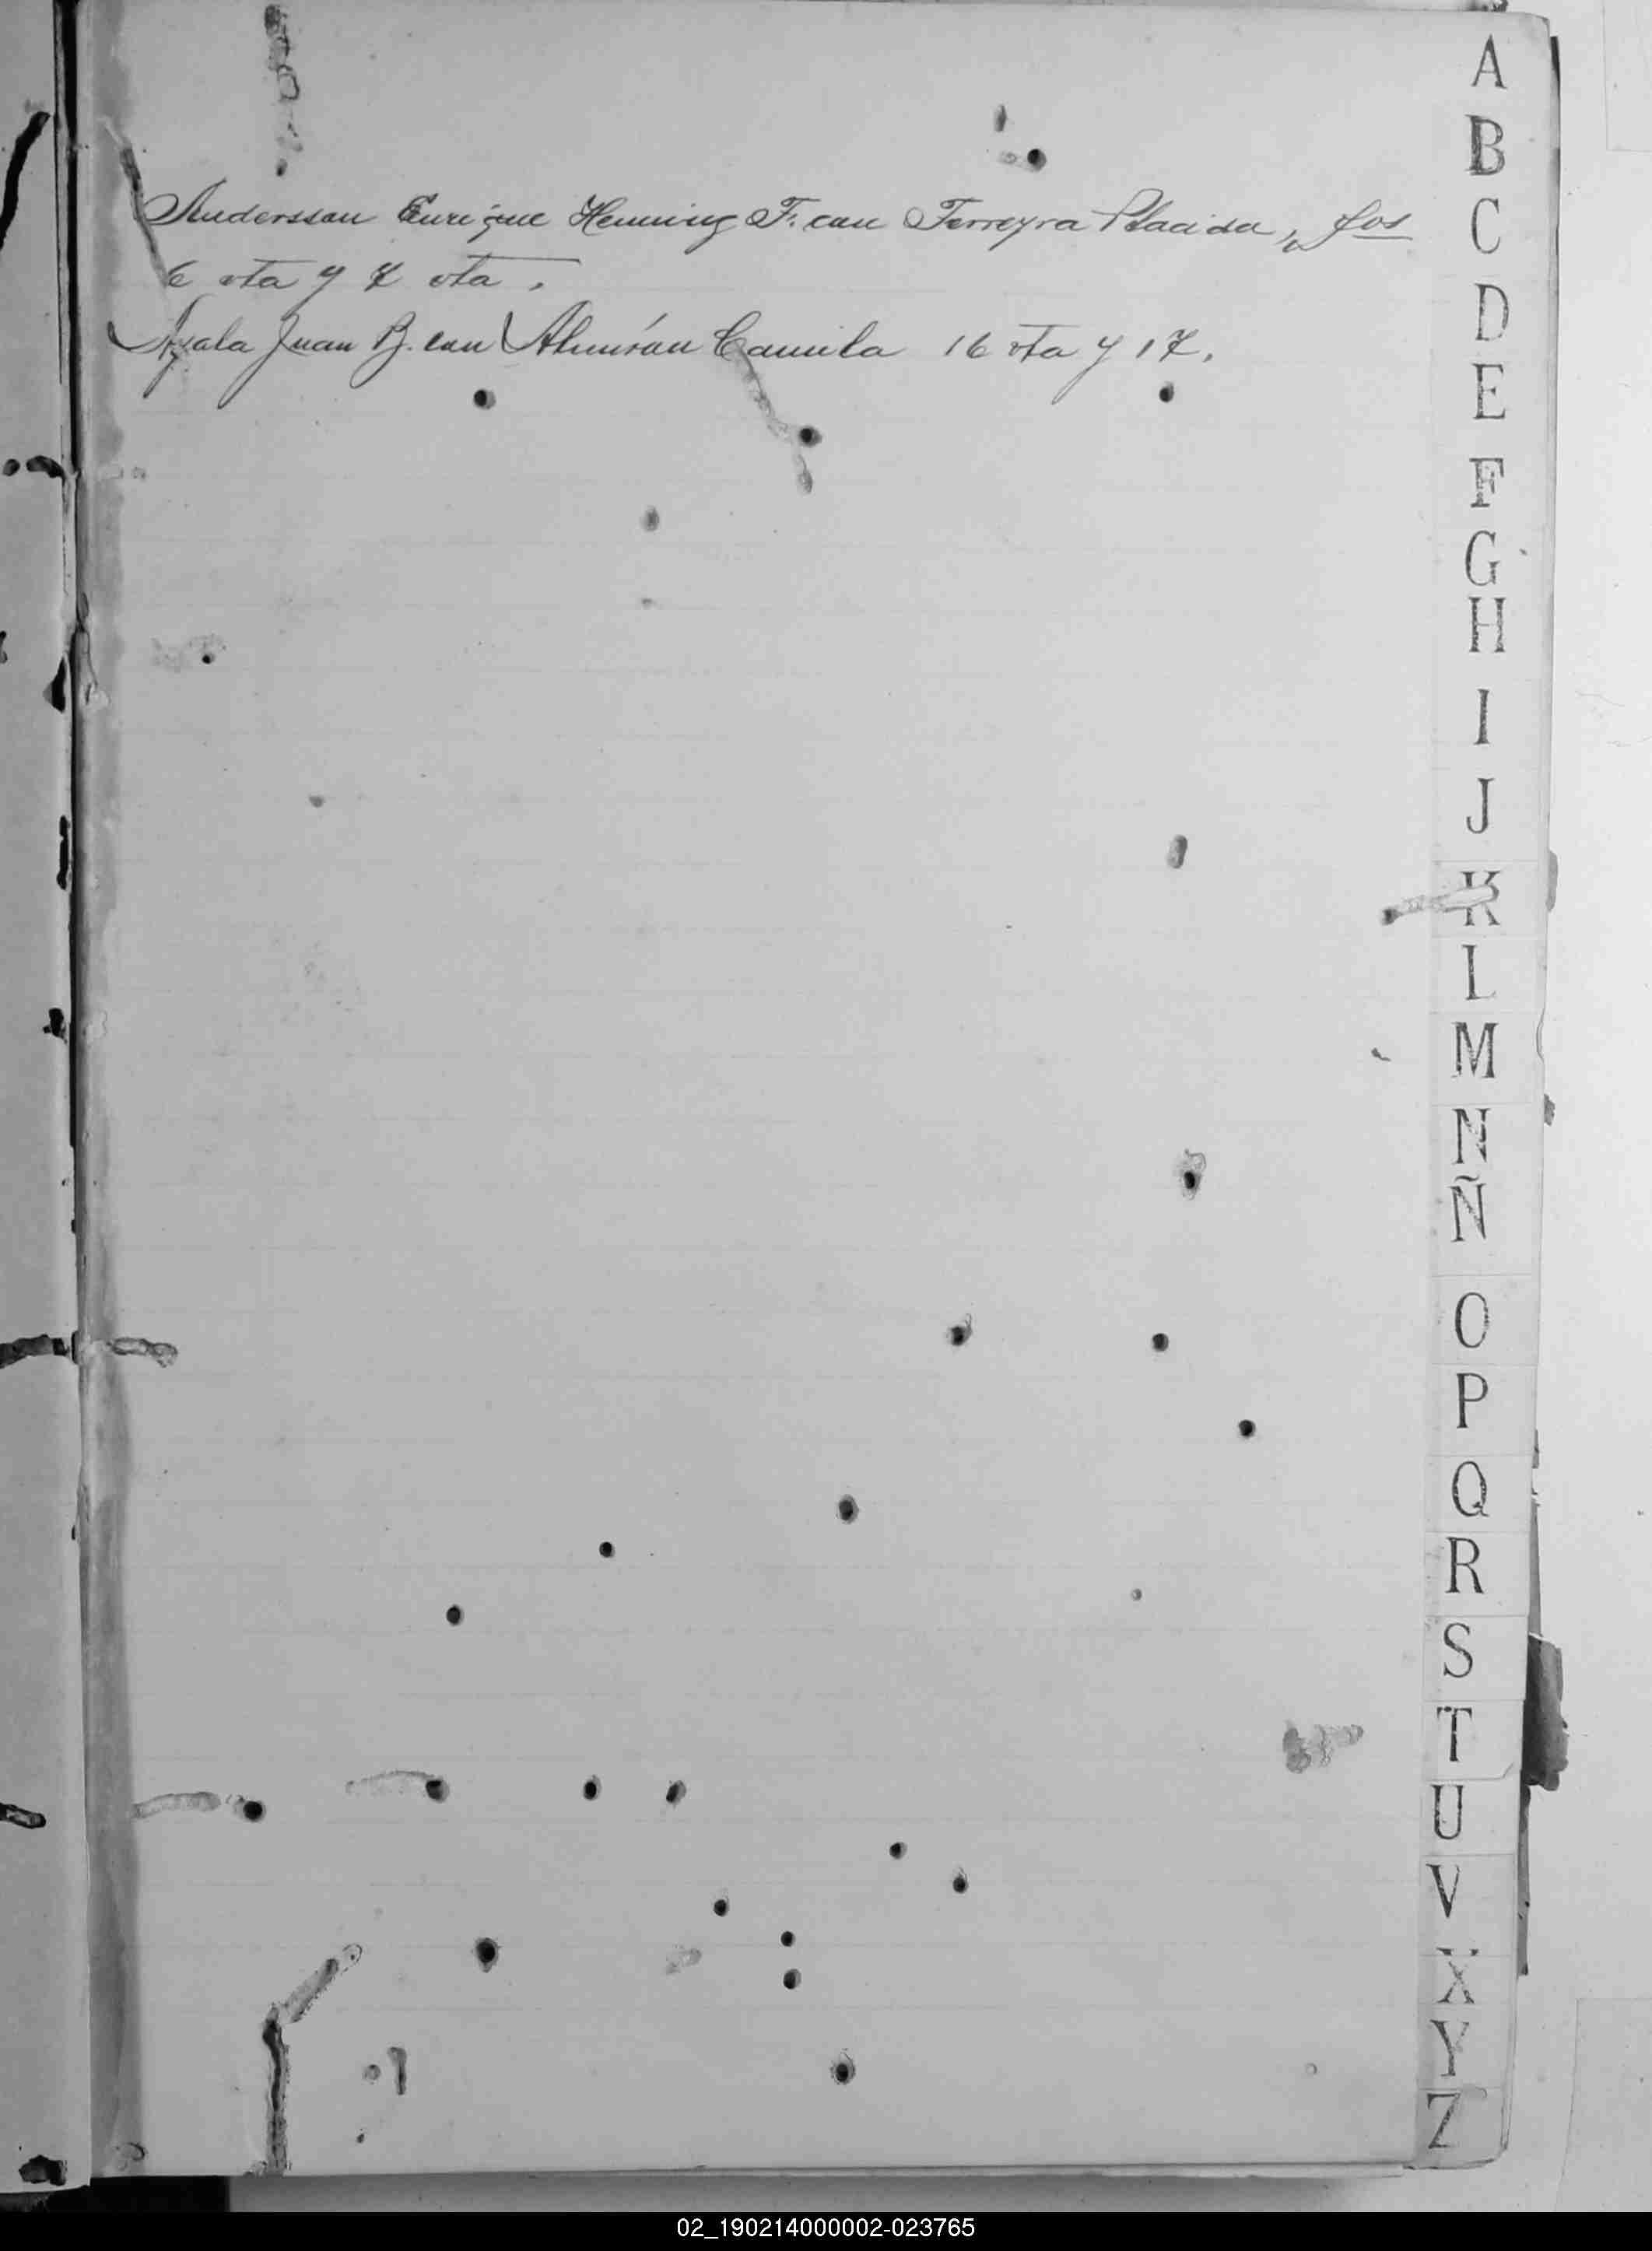 Andersson Enrique Henning F. con Ferreyra Placida, fos
6 vta y 7 vta.
Ayala Juan B. con Almirón Camila 16 vta y 17.
A
B
C
D
E
F
G
H
I
J
K
L
M
N
Ñ
O
P
Q
R
S
T
U
V
X
Y
Z
02_190214000002-023765